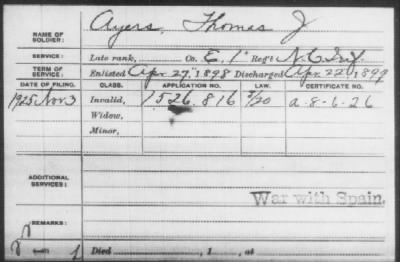 NAME OF SOLDIER: Ayers, Thomas J
SERVICE: Late rank, Co. E, 1" Reg't N.C. Inf.
TERM OF SERVICE: Enlisted Apr. 27, 1898 Discharged Apr. 22 1899
DATE OF FILING. CLASS. APPLICATION NO. LAW. CERTIFICATE NO.
1925 Nov 3 Invalid, 1526,816 3/20 a-8-6-26
Widow,
Minor,
ADDITIONAL SERVICES:
War with Spain.
REMARKS:
Died , 1 , at